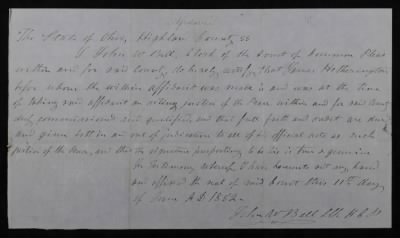 The State of Ohio, Highland County ss
I John W Bell, Clerk of the Court of Common Pleas
within and for said County do hereby certify that James Hetherington
before whom the within Affidavit was made is and was at the time
of taking said affidavit an acting Justice of the Peace within and for said County
duly commissioned and qualified and that full faith and credit are due
and given both in an out of Judication to all of his official acts as such
Justice of the Peace, and that the signature purporting to be his is true & genuine
In Testimony whereof I have hereunto set my hand
and affixed the seal of said Court this 11th day
of June A D 1862
John W Bell Clk